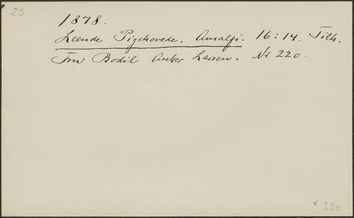 25
1878.
Leende Pigehoved. Amalfi. 16:14. Tilh.
Fru Bodil Anker Larsen. No 220.
220